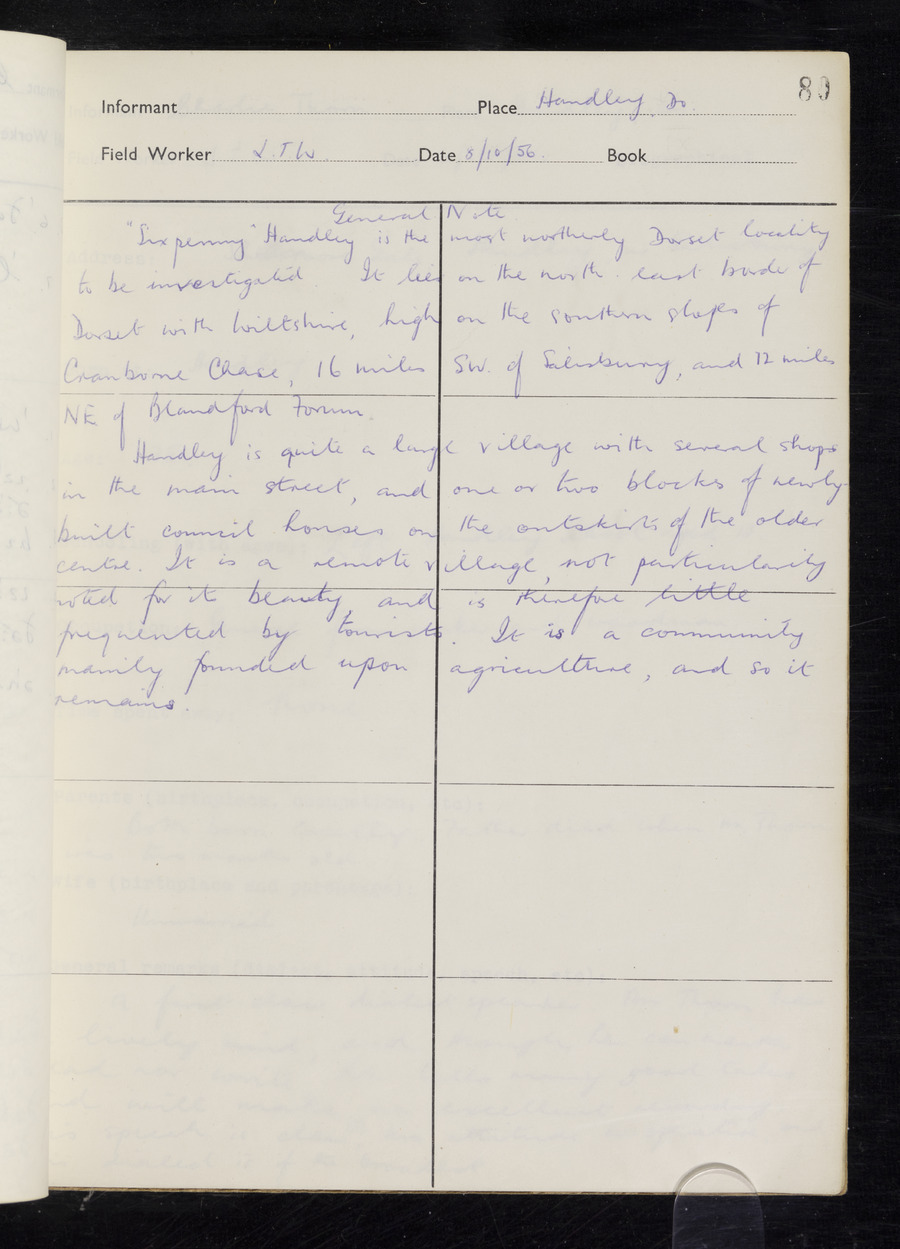 80
Informant Place Handley, Do.
Field Worker J.T.W. Date 8/10/56. Book
General Note
"Sixpenny" Handley is the most northerly Dorset locality
to be investigated. It lies on the north-east border of
Dorset with Wiltshire, high on the southern slopes of
Cranborne Chase, 16 miles SW. of Salisbury, and 12 miles
NE of Blandford Forum.
Handley is quite a large village with several shops
in the main street, and one or two blocks of newly-
built council houses on the outskirts of the older
centre. It is a remote village, not particularly
noted for it beauty, and is therefore little
frequented by tourists. It is a community
mainly founded upon agriculture, and so it
remains.